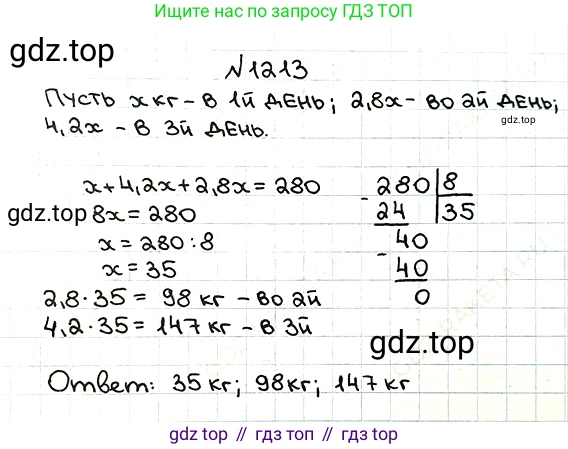 Ищите нас по запросу ГДЗ ТОП
gdz.top
№1213
Пусть x кг – в 1й день; 2,8x – во 2й день;
gdz.top
4,2x – в 3й день.
x + 4,2x + 2,8x = 280
280 | 8
gdz.top
8x = 280
- 24 | 35
x = 280 : 8
40
x = 35
- 40
2,8 · 35 = 98 кг – во 2й
0
4,2 · 35 = 147 кг – в 3й
gdz.top
Ответ: 35 кг; 98 кг; 147 кг
gdz top // гдз топ // gdz.top